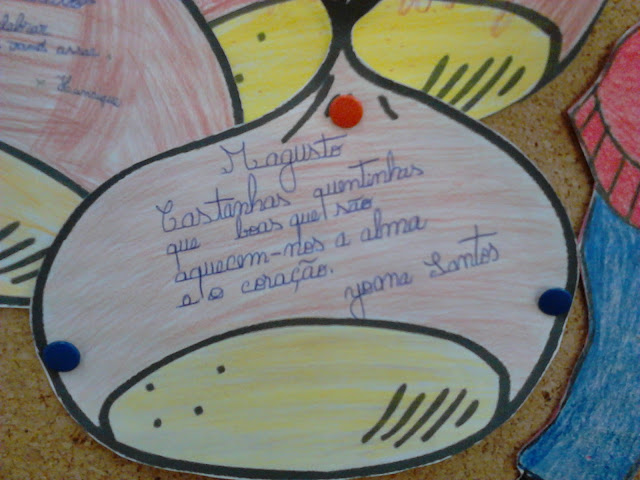 elebrar
vamos assar.
Henrique
Magusto
Castanhas quentinhas
que boas que são
aquecem-nos a alma
e o coração.
Yoana Santos